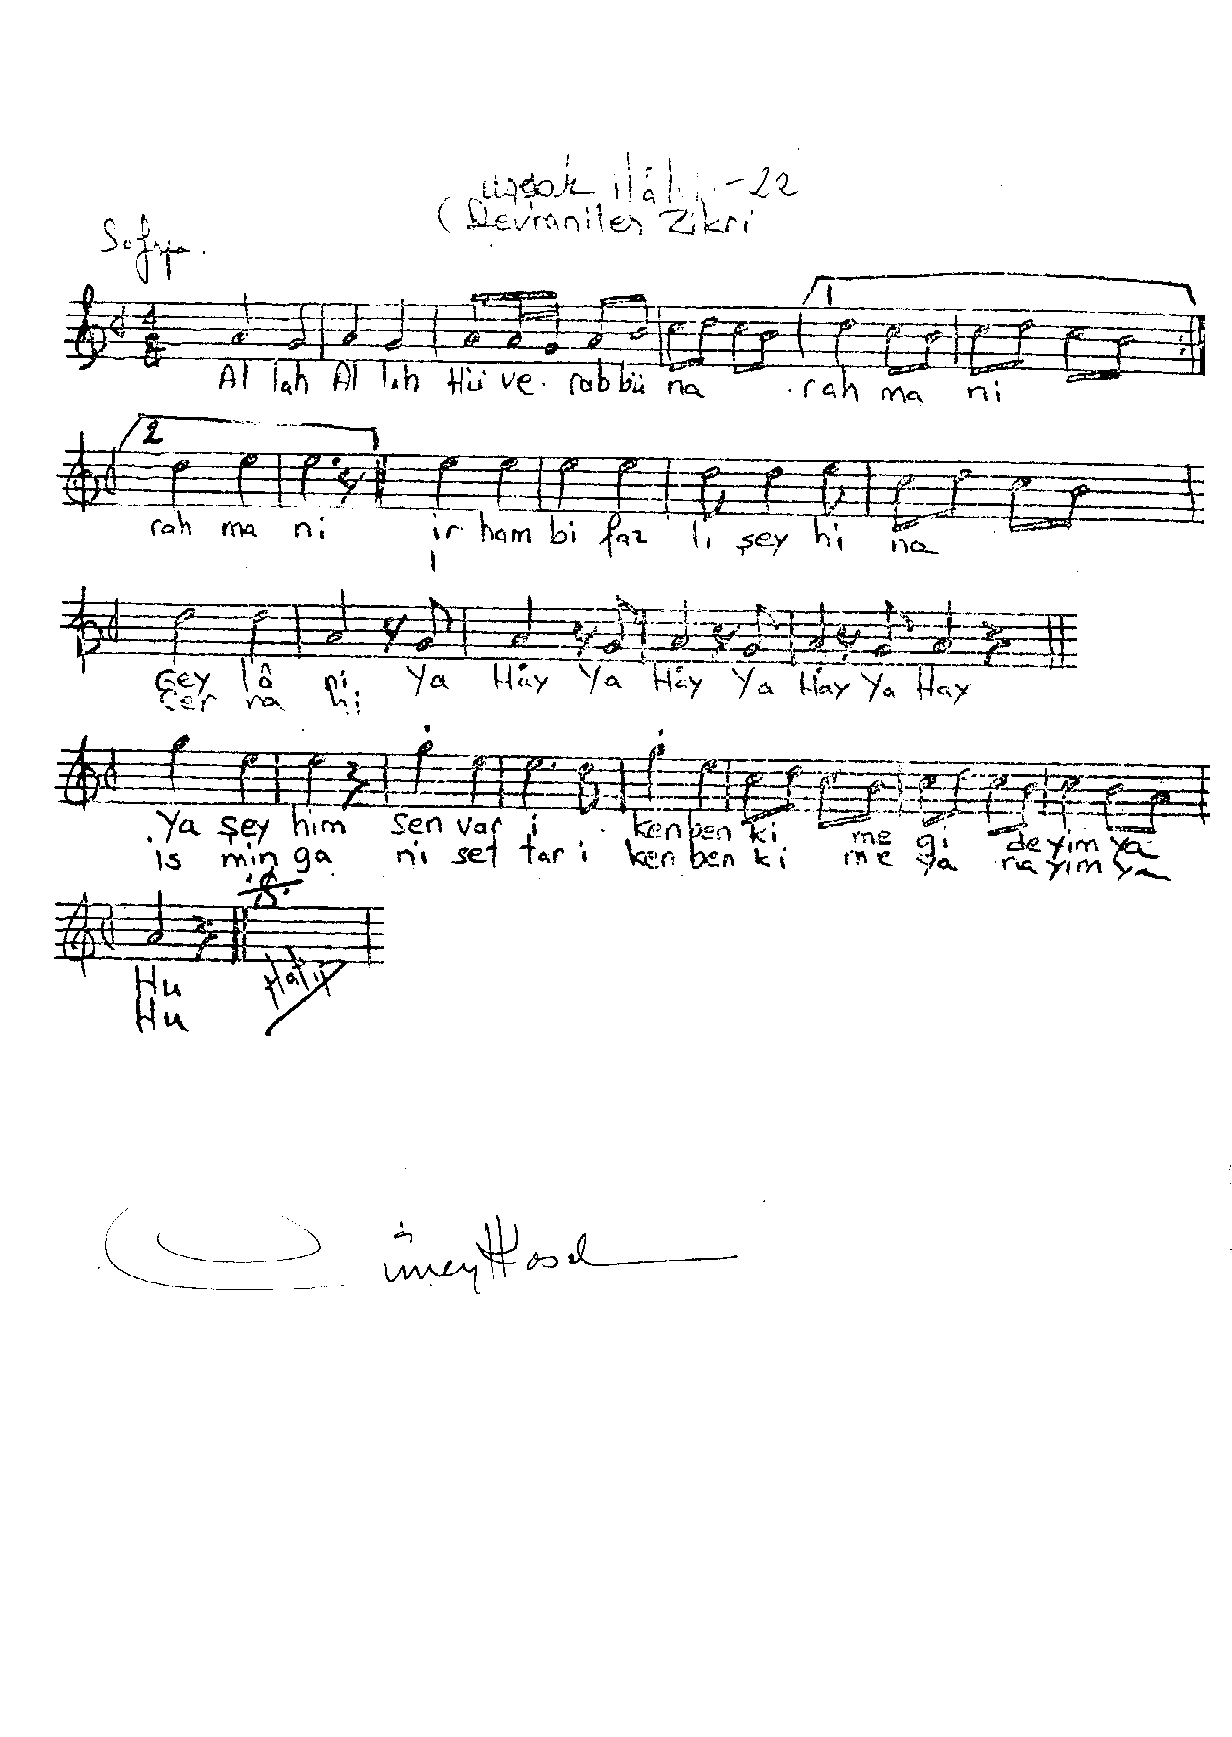 uşşak ilâhi -22
(Devraniler Zikri
Sofyan.
1
Al lah Al lah Hü ve rab bü na rah ma ni
2
rah ma ni ir ham bi faz li şey hi na
Gey lâ ni Ya Hay Ya Hay Ya Hay Ya Hay
Cer ra hi
Ya şey him sen var i ken ben ki me gi de yim ya
is min ga ni set tar i ken ben ki me ya na yım ya
Hu
Hu